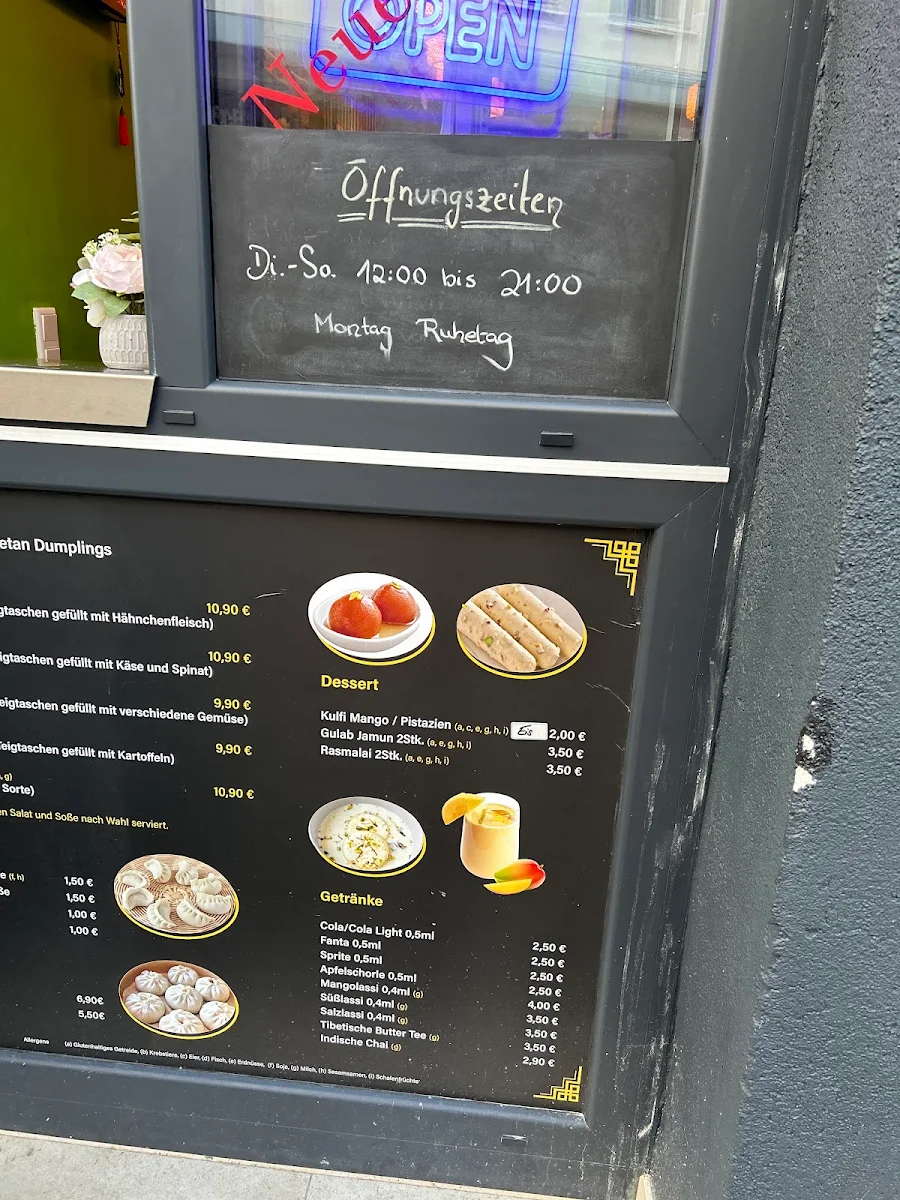 Neue
OPEN
Öffnungszeiten
Di.-So. 12:00 bis 21:00
Montag Ruhetag
etan Dumplings
10,90 €
gtaschen gefüllt mit Hähnchenfleisch)
10,90 €
igtaschen gefüllt mit Käse und Spinat)
9,90 €
eigtaschen gefüllt mit verschiedene Gemüse)
9,90 €
Teigtaschen gefüllt mit Kartoffeln)
, g)
Sorte) 10,90 €
en Salat und Soße nach Wahl serviert.
e (f, h) 1,50 €
ße 1,50 €
1,00 €
1,00 €
6,90€
5,50€
Dessert
Kulfi Mango / Pistazien (a, c, e, g, h, i) Eis 2,00 €
Gulab Jamun 2Stk. (a, e, g, h, i) 3,50 €
Rasmalai 2Stk. (a, e, g, h, i) 3,50 €
Getränke
Cola/Cola Light 0,5ml 2,50 €
Fanta 0,5ml 2,50 €
Sprite 0,5ml 2,50 €
Apfelschorle 0,5ml 2,50 €
Mangolassi 0,4ml (g) 4,00 €
Süßlassi 0,4ml (g) 3,50 €
Salzlassi 0,4ml (g) 3,50 €
Tibetische Butter Tee (g) 3,50 €
Indische Chai (g) 2,90 €
Allergene (a) Glutenhaltiges Getreide, (b) Krebstiere, (c) Eier, (d) Fisch, (e) Erdnüsse, (f) Soja, (g) Milch, (h) Sesamsamen, (i) Schalenfrüchte